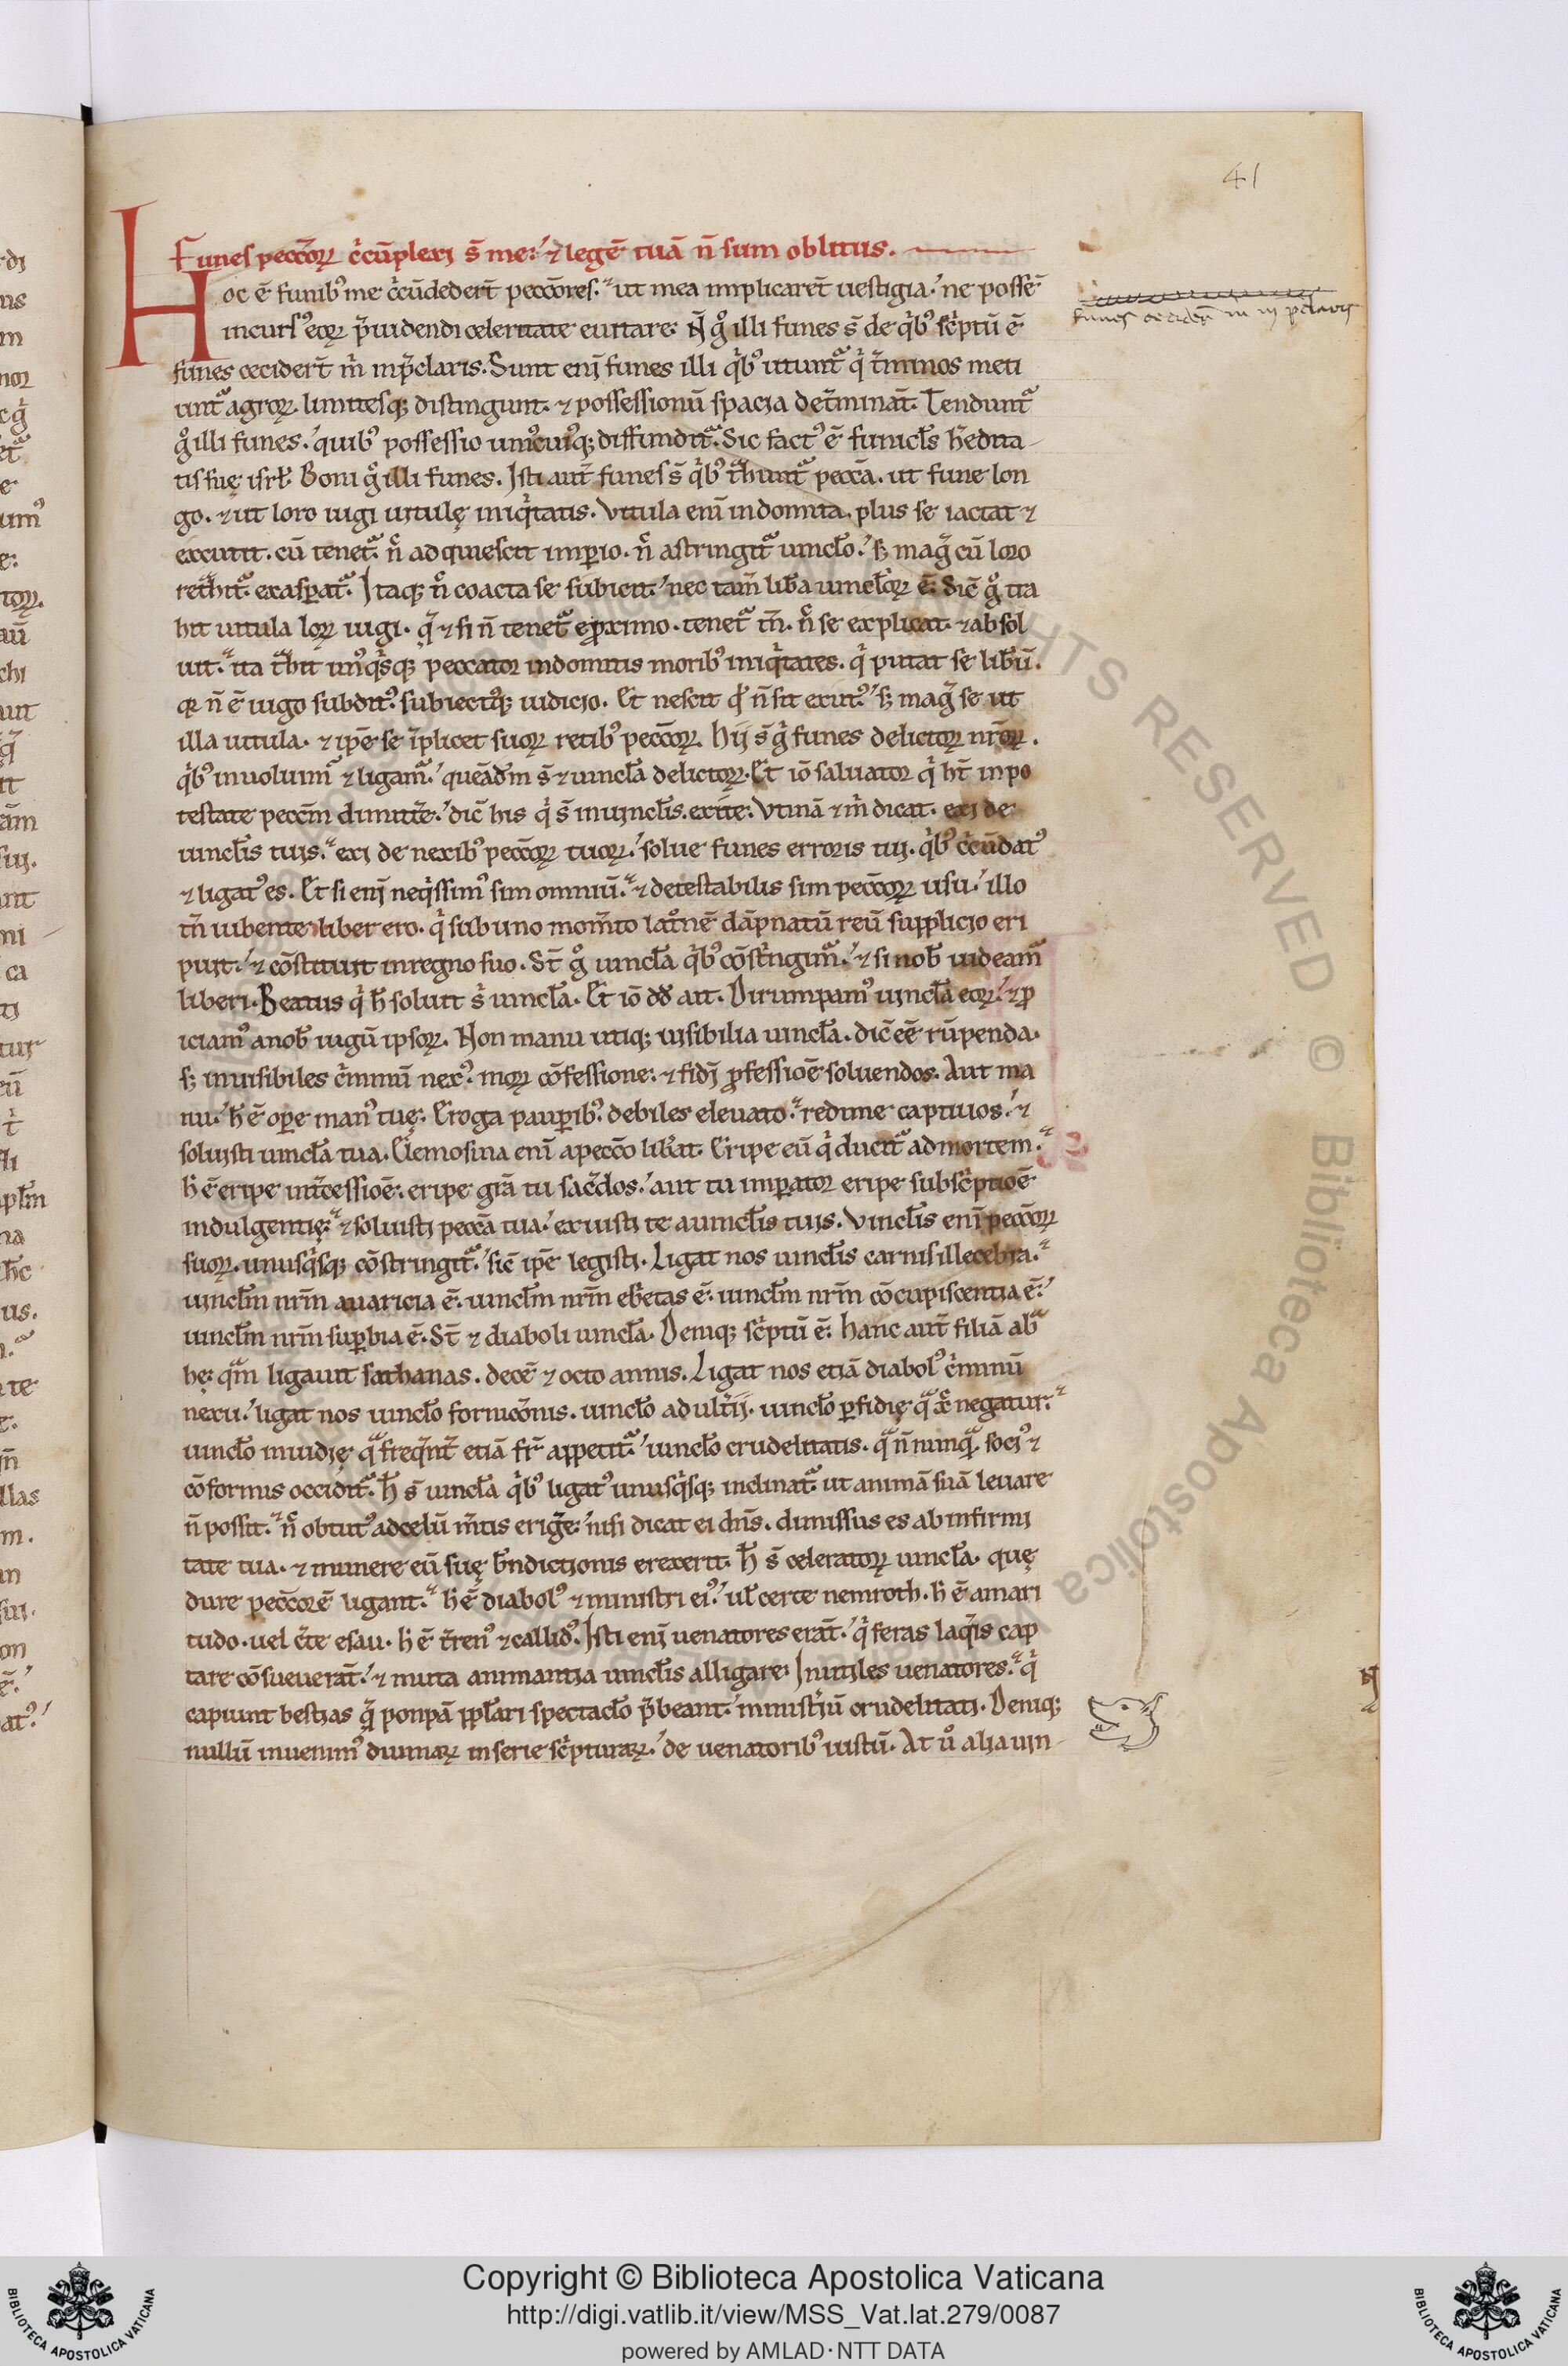 41
Funes pecc̄oꝝ c̄cūplexi s̄ me: ⁊ legē tuā n̄ sum oblitus.
Hoc ē funibꝰ me c̄cūdedert̄ pecc̄ores. ut mea implicarēt uestigia. ne possē
incursꝰ eoꝝ p̄uidendi celeritate euitare. N̄ gͦ illi funes s̄ de qⁱbꝰ sc̄ptū ē
funes cecidert̄ m̄ inp̄claris. Sunt enī funes illi qⁱbꝰ utunt᷑ qⁱ t̄minos meti
unt᷑ agroꝝ. limitesqꝫ distingunt. ⁊ possessionū spacia det̄mināt. Tendunt᷑
gͦ illi funes. quibꝰ possessio unicuiqꝫ diffundit᷑. Sic factꝰ ē funicl̄s h̄edita
tis suę isrl̄. Boni gͦ illi funes. Isti aut̄ funes s̄ qⁱbꝰ tͣhunt᷑ pecc̄a. ut fune lon
go. ⁊ ut loro iugi uitulę iniqⁱtatis. Vitula enī indomita. plus se iactat ⁊
excutit. cū tenet᷑. n̄ adquiescit imꝑio. n̄ astringit᷑ uincl̄o. sꝫ maḡ cū loro
retͣhit᷑. exasꝑat᷑. Itaqꝫ n̄ coacta se subicit. nec tam̄ lib̄a uincl̄oꝝ ē. Sic̄ gͦ tra
hit uitula loꝝ iugi. q̄ ⁊ si n̄ tenet᷑ eꝓximo. tenet᷑ tn̄. n̄ se explicat. ⁊ absol
uit. ita tͣhit unꝰqⁱsqꝫ peccator indomitis moribꝰ iniqⁱtates. qⁱ putat se lib̄ū.
qr n̄ ē iugo subditꝰ. subiectꝰqꝫ iudicio. Et nescit qd̄ n̄ sit exutꝰ. sꝫ maḡ se ut
illa uitula. ⁊ ip̄e se īplicet suoꝝ retibꝰ pecc̄oꝝ. Hij s̄ gͦ funes delictoꝝ nr̄oꝝ.
qⁱbꝰ inuoluimꝰ ⁊ ligamꝰ. queād̄m s̄ ⁊ uincl̄a delictoꝝ. Et iō saluator qⁱ ht̄ inpo
testate pecc̄m dimittͤe. dic̄ his qⁱ s̄ inuincl̄is. exite. Vtinā ⁊ m̄ dicat. exi de
uincl̄is tuis. exi de nexibꝰ pecc̄oꝝ tuoꝝ. solue funes erroris tui. qⁱbꝰ c̄cūdatꝰ
⁊ ligatꝰ es. Et si enī neqⁱssimꝰ sim omniū. ⁊ detestabilis sim pecc̄oꝝ usu. illo
tn̄ iubente liber ero. qⁱ sub uno mom̄to latͦnē dāpnatū reū supplicio eri
puit. ⁊ cōstituit inregno suo. St̄ gͦ uincl̄a qⁱbꝰ cōstⁱngim᷑. ⁊ si nob̄ uideam᷑
liberi. Beatus qⁱ h̄ soluit s̄ uincl̄a. Et iō dd̄ ait. Dirumpamꝰ uincl̄a eoꝝ. ⁊ ꝓ
iciamꝰ anob̄ iugū ipsoꝝ. Non manu utiqꝫ uisibilia uincl̄a. dic̄ eē rūpenda.
sꝫ inuisibiles c̄minū nexꝰ. moꝝ cōfessione. ⁊ fidi ꝓfessioē soluendos. Aut ma
nu. h̄ ē oꝑe manꝰ tuę. Eroga pauꝑibꝰ. debiles eleuato. redime captiuos. ⁊
soluisti uincl̄a tua. Elemosina enī apecc̄o lib̄at. Eripe eū qⁱ ducit᷑ ad mortem.
h̄ ē eripe int̄cessioē. eripe gr̄a tu sac̄dos. aut tu imꝑator eripe subsc̄ptioē
indulgentię. ⁊ soluisti pecc̄a tua. exuisti te auincl̄is tuis. Vincl̄is enī pecc̄oꝝ
suoꝝ. unusqⁱsqꝫ cōstringit᷑. sic̄ ip̄e legisti. Ligat nos uincl̄is carnis illecebra.
uincl̄m nr̄m auaricia ē. uincl̄m nr̄m eb̄etas ē. uincl̄m nr̄m cōcupiscentia ē.
uincl̄m nr̄m suꝑbia ē. St̄ ⁊ diaboli uincl̄a. Deniqꝫ sc̄ptū ē. hanc aut̄ filiā abͣ
hę. qͣm ligauit sathanas. decē ⁊ octo annis. Ligat nos etiā diabolꝰ c̄minū
nexu. ligat nos uincl̄o fornicōnis. uincl̄o adult̄ij. uincl̄o ꝑfidię qͣ xp̄c negatur.
uincl̄o inuidię qͣ freq̄nt̄ etiā fr̄ appetit᷑. uincl̄o crudelitatis. qͣ n̄nunqͣ. sociꝰ ⁊
cōformis occidit᷑. H̄ s̄ uincl̄a qⁱbꝰ ligatꝰ unusqⁱsqꝫ inclinat᷑. ut animā suā leuare
n̄ possit. n̄ obtutꝰ adcelū m̄tis erigͤe. nisi dicat ei dn̄s. dimissus es ab infirmi
tate tua. ⁊ munere eū suę b̄ndictionis erexerit. H̄ s̄ celeratoꝝ uincl̄a. quę
dure pecc̄orē ligant. h̄ ē diabolꝰ ⁊ ministri eiꝰ. ul̄ certe nemroth. h̄ ē amari
tudo. uel c̄te esau. h̄ ē t̄renꝰ ⁊ callidꝰ. Isti enī uenatores erāt. qⁱ feras laq̄is cap
tare cōsueuerāt. ⁊ muta animantia uincl̄is alligare. Inutiles uenatores. qⁱ
capiunt bestias q̄ ponpā ppl̄ari spectacl̄o p̄beant. ministⁱū crudelitati. Deniqꝫ
nullū inuenimꝰ diuinaꝝ in serie sc̄pturaꝝ. de uenatoribꝰ iustū. At u̇ͦ alia uin
funes ceciderūt m̄ ī p̄claris
Copyright © Biblioteca Apostolica Vaticana
http://digi.vatlib.it/view/MSS_Vat.lat.279/0087
powered by AMLAD·NTT DATA